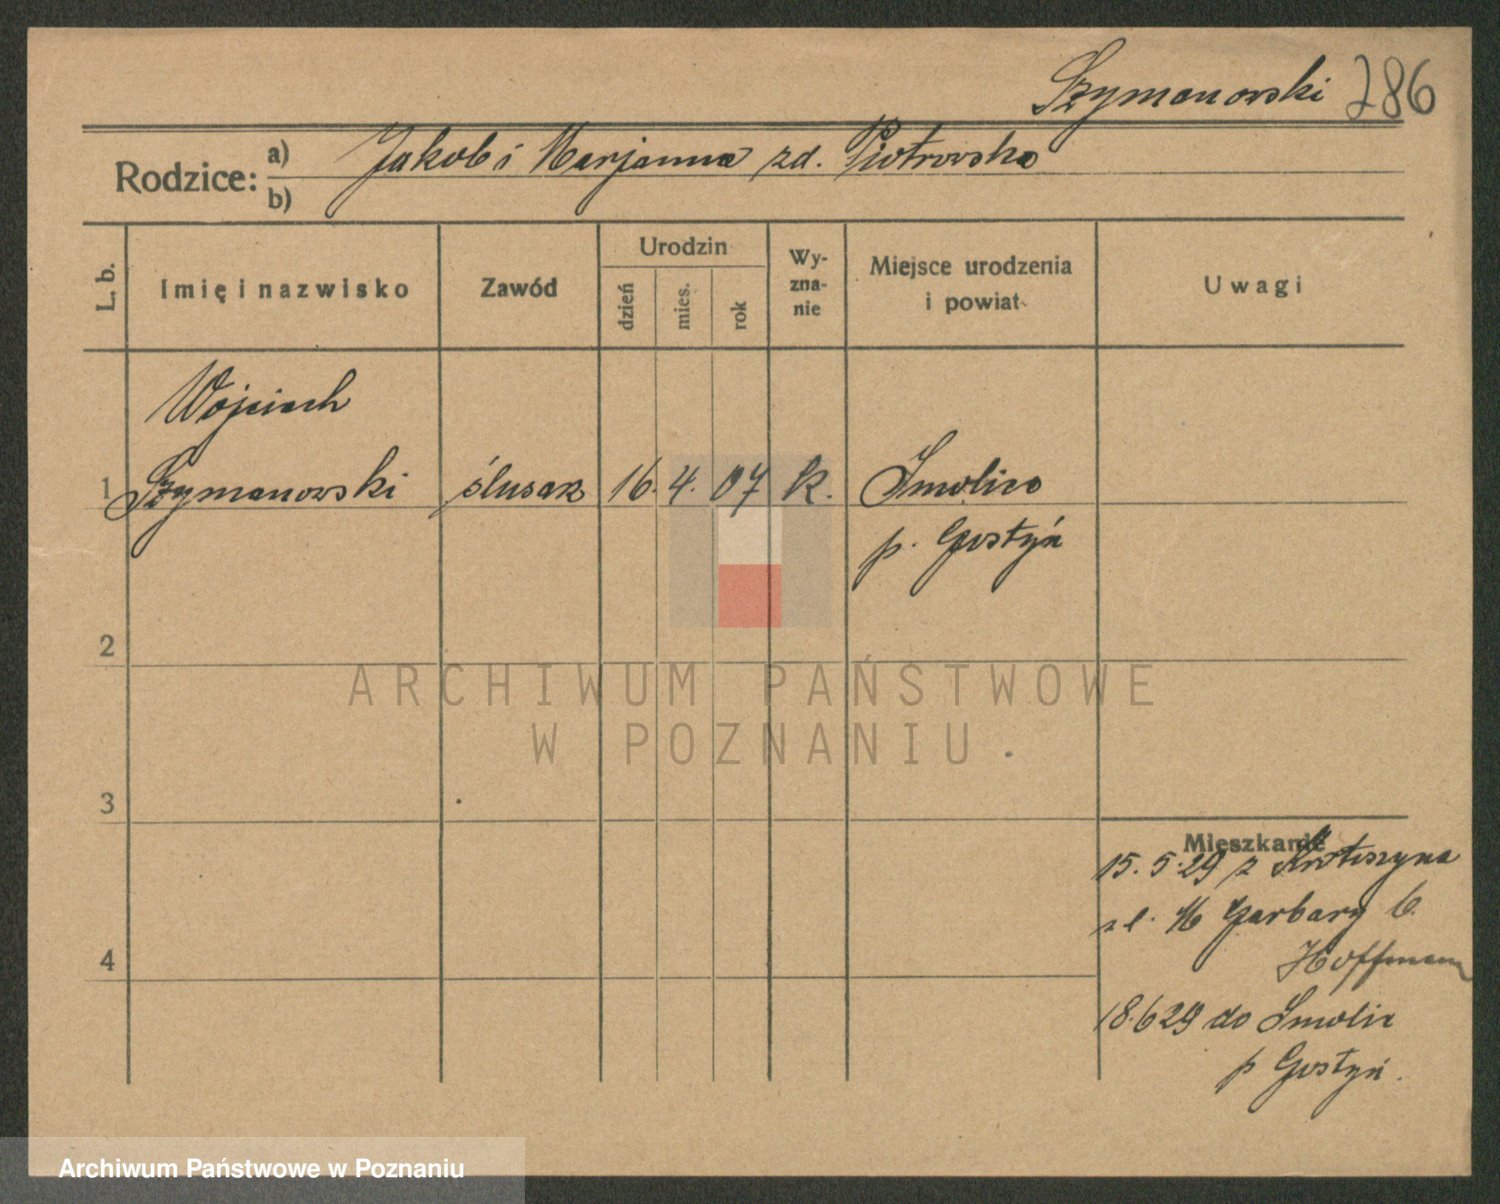 Szymanowski 286
Rodzice: a) Jakob i Marjanna zd. Piotrowska
b)
L. b. Imię i nazwisko Zawód Urodzin dzień mies. rok Wyznanie Miejsce urodzenia i powiat Uwagi
Wojciech
1 Szymanowski ślusarz 16. 4. 07 k. Smolice
p. Gostyń
2
ARCHIWUM PAŃSTWOWE
W POZNANIU
3
Mieszkanie
15.5.29 z Krotoszyna
ul. Garbary 6
4
Hoffmann
18.6 29 do Smolic
p Gostyń.
Archiwum Państwowe w Poznaniu